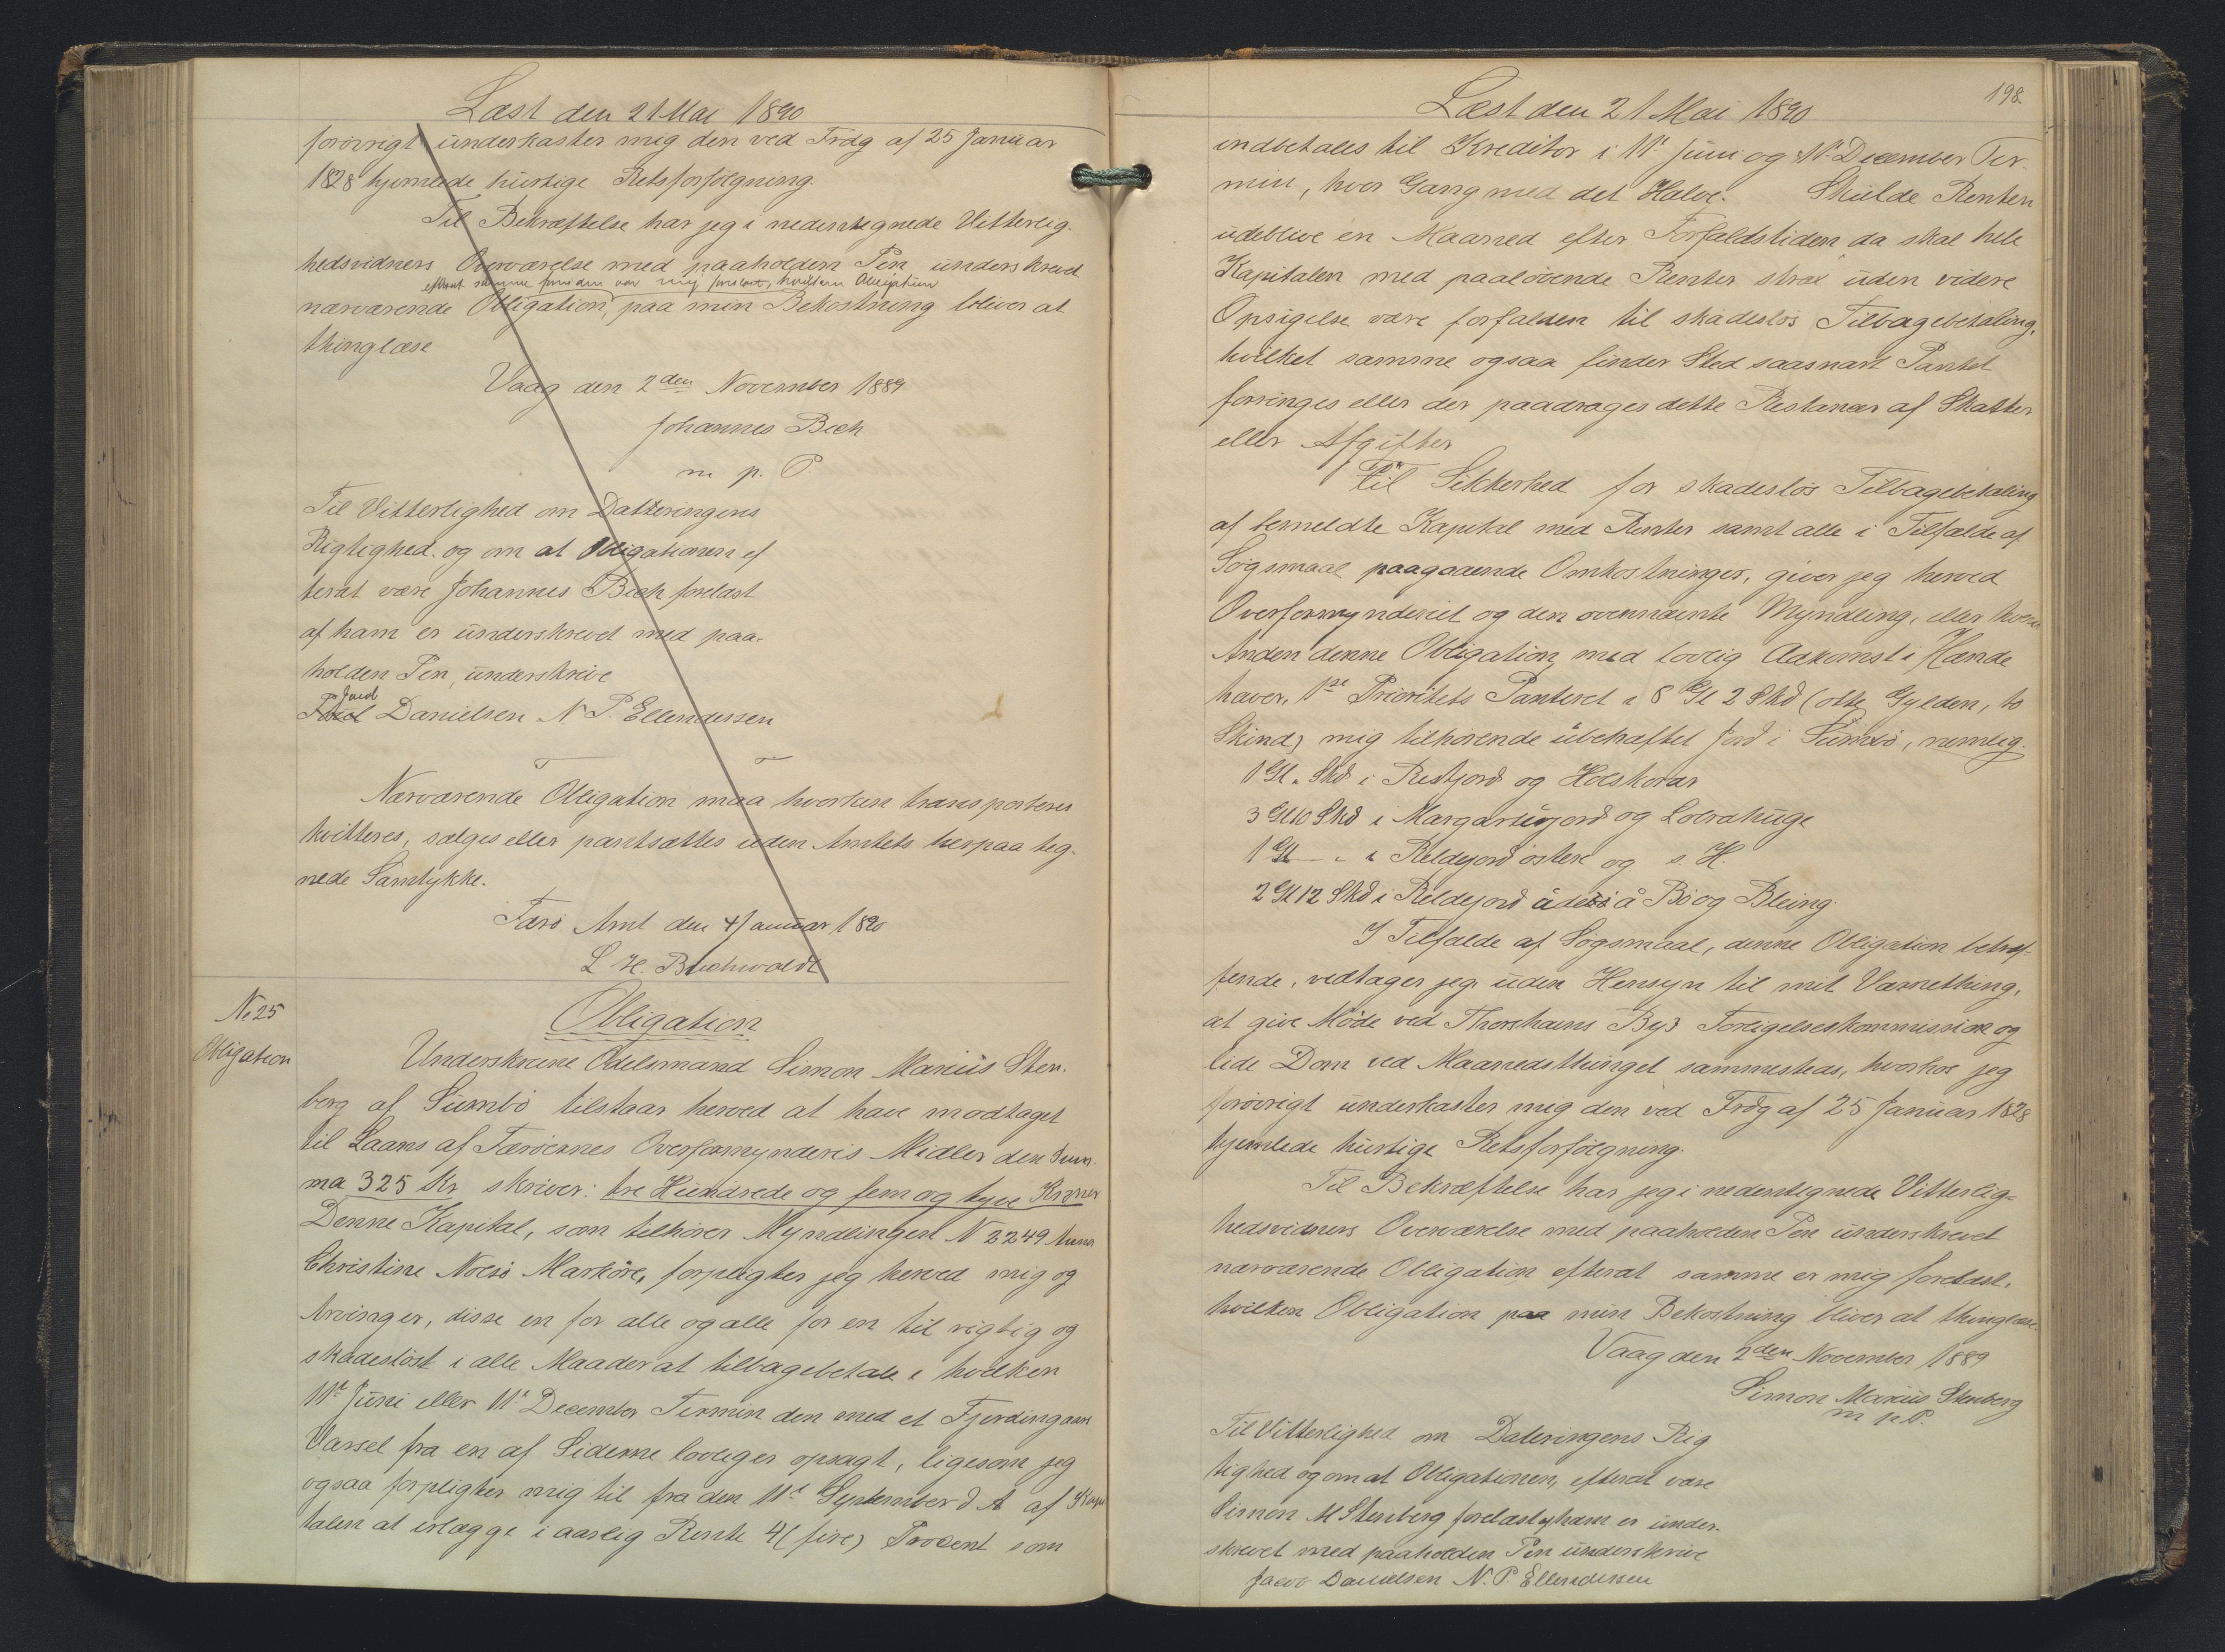 Læst den 21 Mai 1890
forøvrigt underkaster mig den ved Frdg af 25 Januar
1828 hjemlede hurtige Retsforfølgning.
Til Bekræftelse har jeg i nedentegnede Vitterlig-
hedsvidners Overværelse med paaholden Pen underskrevet
efterat samme forinden var mig forelæst, hvilken Obligation
nærværende Obligation, paa min Bekostning bliver at
thinglæse
Vaag den 2den November 1889
Johannes Bech
m p. P.
Til Vitterlighed om Datteringens
Rigtighed. og om at Obligationen ef
terat være Johannes Bech forelæst
af ham er underskrevet med paa-
holden Pen, underskrive
Jacob Danielsen N. P. Ellendersen
Nærværende Obligation maa hverken transporteres
kvitteres, sælges eller pantsættes uden Amtets herpaa teg-
nede Samtykke.
Færø Amt den 4 Januar 1890
L H. Buchwaldt
No 25
Obligation
Obligation
Underskrevne Odelsmand Simon Marius Sten-
berg af Sumbø tilstaar herved at have modtaget
til Laans af Færøernes Overformynderis Midler den Sum-
ma 325 Kr skriver: tre Hundrede og fem og tyve Kroner
Denne Kapital, som tilhører Myndlingen N 2249 Anna
Christine Nolsø Markøre, forpligter jeg herved mig og
Arvinger, disse en for alle og alle for en til rigtig og
skadesløst i alle Maader at tilbagebetale i hvilken
11te Juni eller 11te December Termin den med et Fjerdingaars
Varsel fra en af Siderne lovliges opsagt, ligesom jeg
ogsaa forpligter mig til fra den 11te September d A af Kapi
talen at erlægge i aarlig Rente 4 (fire) Procent som
198.
Læst den 21 Mai 1890
indbetales til Kreditor i 11te Juni og 11te December Ter-
min, hver Gang med det Halve. Skulde Renten
udeblive en Maaned efter Forfaldstiden da skal hele
Kapitalen med paaløbende Renter strax uden videre
Opsigelse være forfalden til skadesløs Tilbagebetaling,
hvilket samme ogsaa finder Sted saasnart Pantet
forringes eller der paadrages dette Restancer af Skatter
eller Afgifter
Til Sikkerhed for skadesløs Tilbagebetaling
af bemeldte Kapital med Renter samt alle i Tilfælde af
Søgsmaal paagaaende Omkostninger, giver jeg herved
Overformynderiet og den ovennævnte Myndling, eller hvem
Anden denne Obligation med lovlig Adkomst i Hænde
haver, 1ste Prioritets Panteret i 8 Gl 2 Skd (otte Gylden, to
Skind) mig tilhørende ubehæftet Jord i Sumbø, nemlig.
1 Gl. " Skd i Restjord og Holskorar
3 Gl 10 Skd i Margartujord og Lobrahuge
1 Gl — " i Reldejord østere og s. H.
2 Gl 12 Skd i Reldejord å Bø og Bleing.
I Tilfælde af Søgsmaal, denne Obligation betræf-
fende, vedtager jeg uden Hensyn til mit Værnething,
at give Møde ved Thorshavns Bys Forligelseskommission og
lide Dom ved Maanedsthinget sammesteds, hvorhos jeg
forøvrigt underkaster mig den ved Frdg af 25 Januar 1828
hjemlede hurtige Retsforfølgning.
Til Bekræftelse har jeg i nedentegnede Vitterlig-
hedsvidners Overværelse med paaholden Pen underskrevet
nærværende Obligation efterat samme er mig forelæst,
hvilken Obligation paa min Bekostning bliver at thinglæse.
Vaag den 2den November 1889
Simon Marius Stenberg
m p. P.
Til Vitterlighed om Dateringens Rig
tighed og om at Obligationen, efterat være
Simon M Stenberg forelæst af ham er under-
skrevet med paaholden Pen underskrive
Jacob Danielsen N. P. Ellendersen